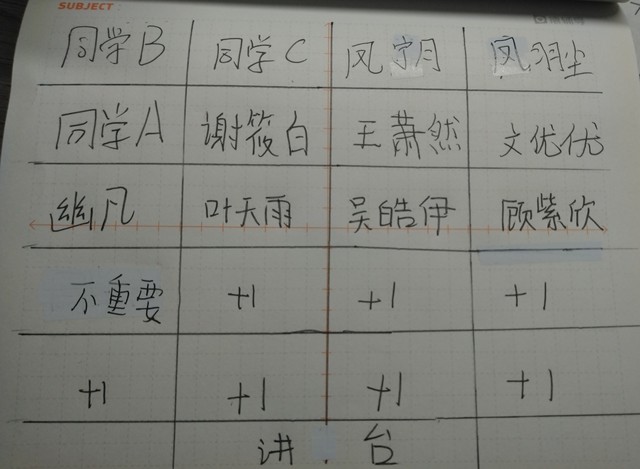 SUBJECT
同学B 同学C 凤翎月 凤羽尘
同学A 谢筱白 王萧然 文优优
幽凡 叶天雨 吴皓伊 顾紫欣
不重要 +1 +1 +1
+1 +1 +1 +1
讲.台